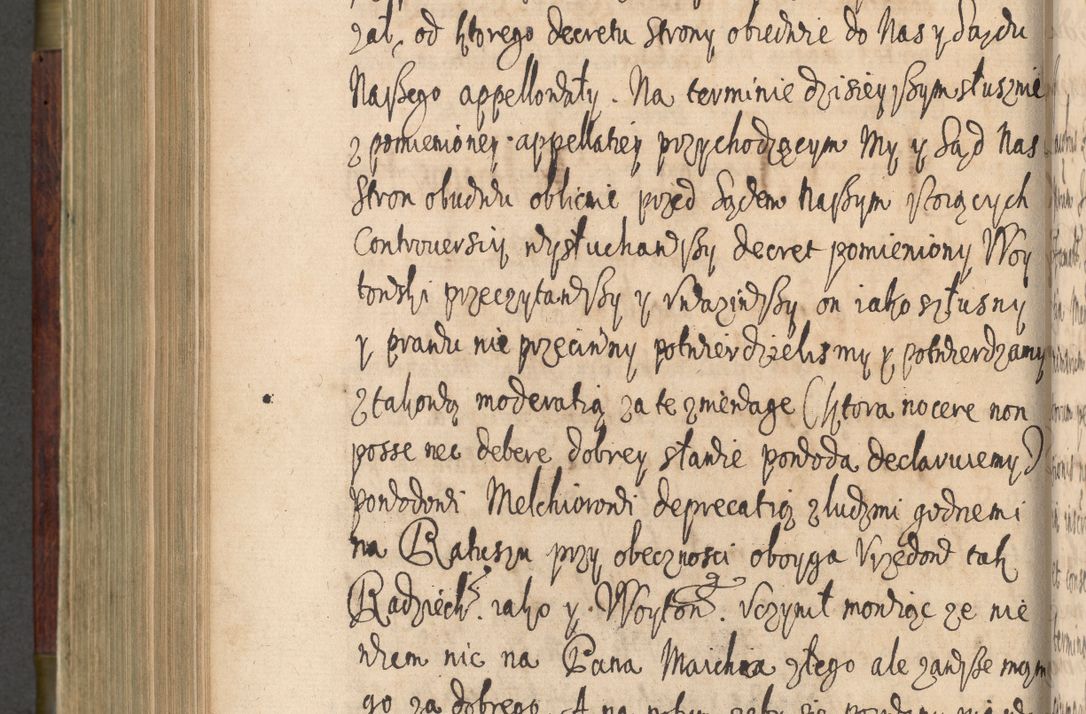 zał, od ktorego decretu strony obiedwie do Nas y Sądu
Naszego appellowały. Na terminie dzisieyszym słusznie
z pomienioney appellatiey przychodzącym My y Sąd Nas
stron obudwu oblicnie przed Sądem Naszym stoiących
Controuersiy wysłuchawszy decret pomieniony Woy
towski przeczytawszy y vważiwszy on iako szłusny
y prawu nie przeciwny potwierdzielismy y potwierdzamy
z takową moderatią za te zniewage (ktora nocere non
posse nec debere dobrey sławie powoda declaruiemy)
powodowi Melchiorowi deprecatią z ludzmi godnemi
na Ratuszu przy obecznosci oboyga Vrzędow tak
Radzieck. iako y Woyton. Vczynił mowiąc ze nie
wiem nic na Pana Maicha złego ale zawsze mam
go za dobrego. A na